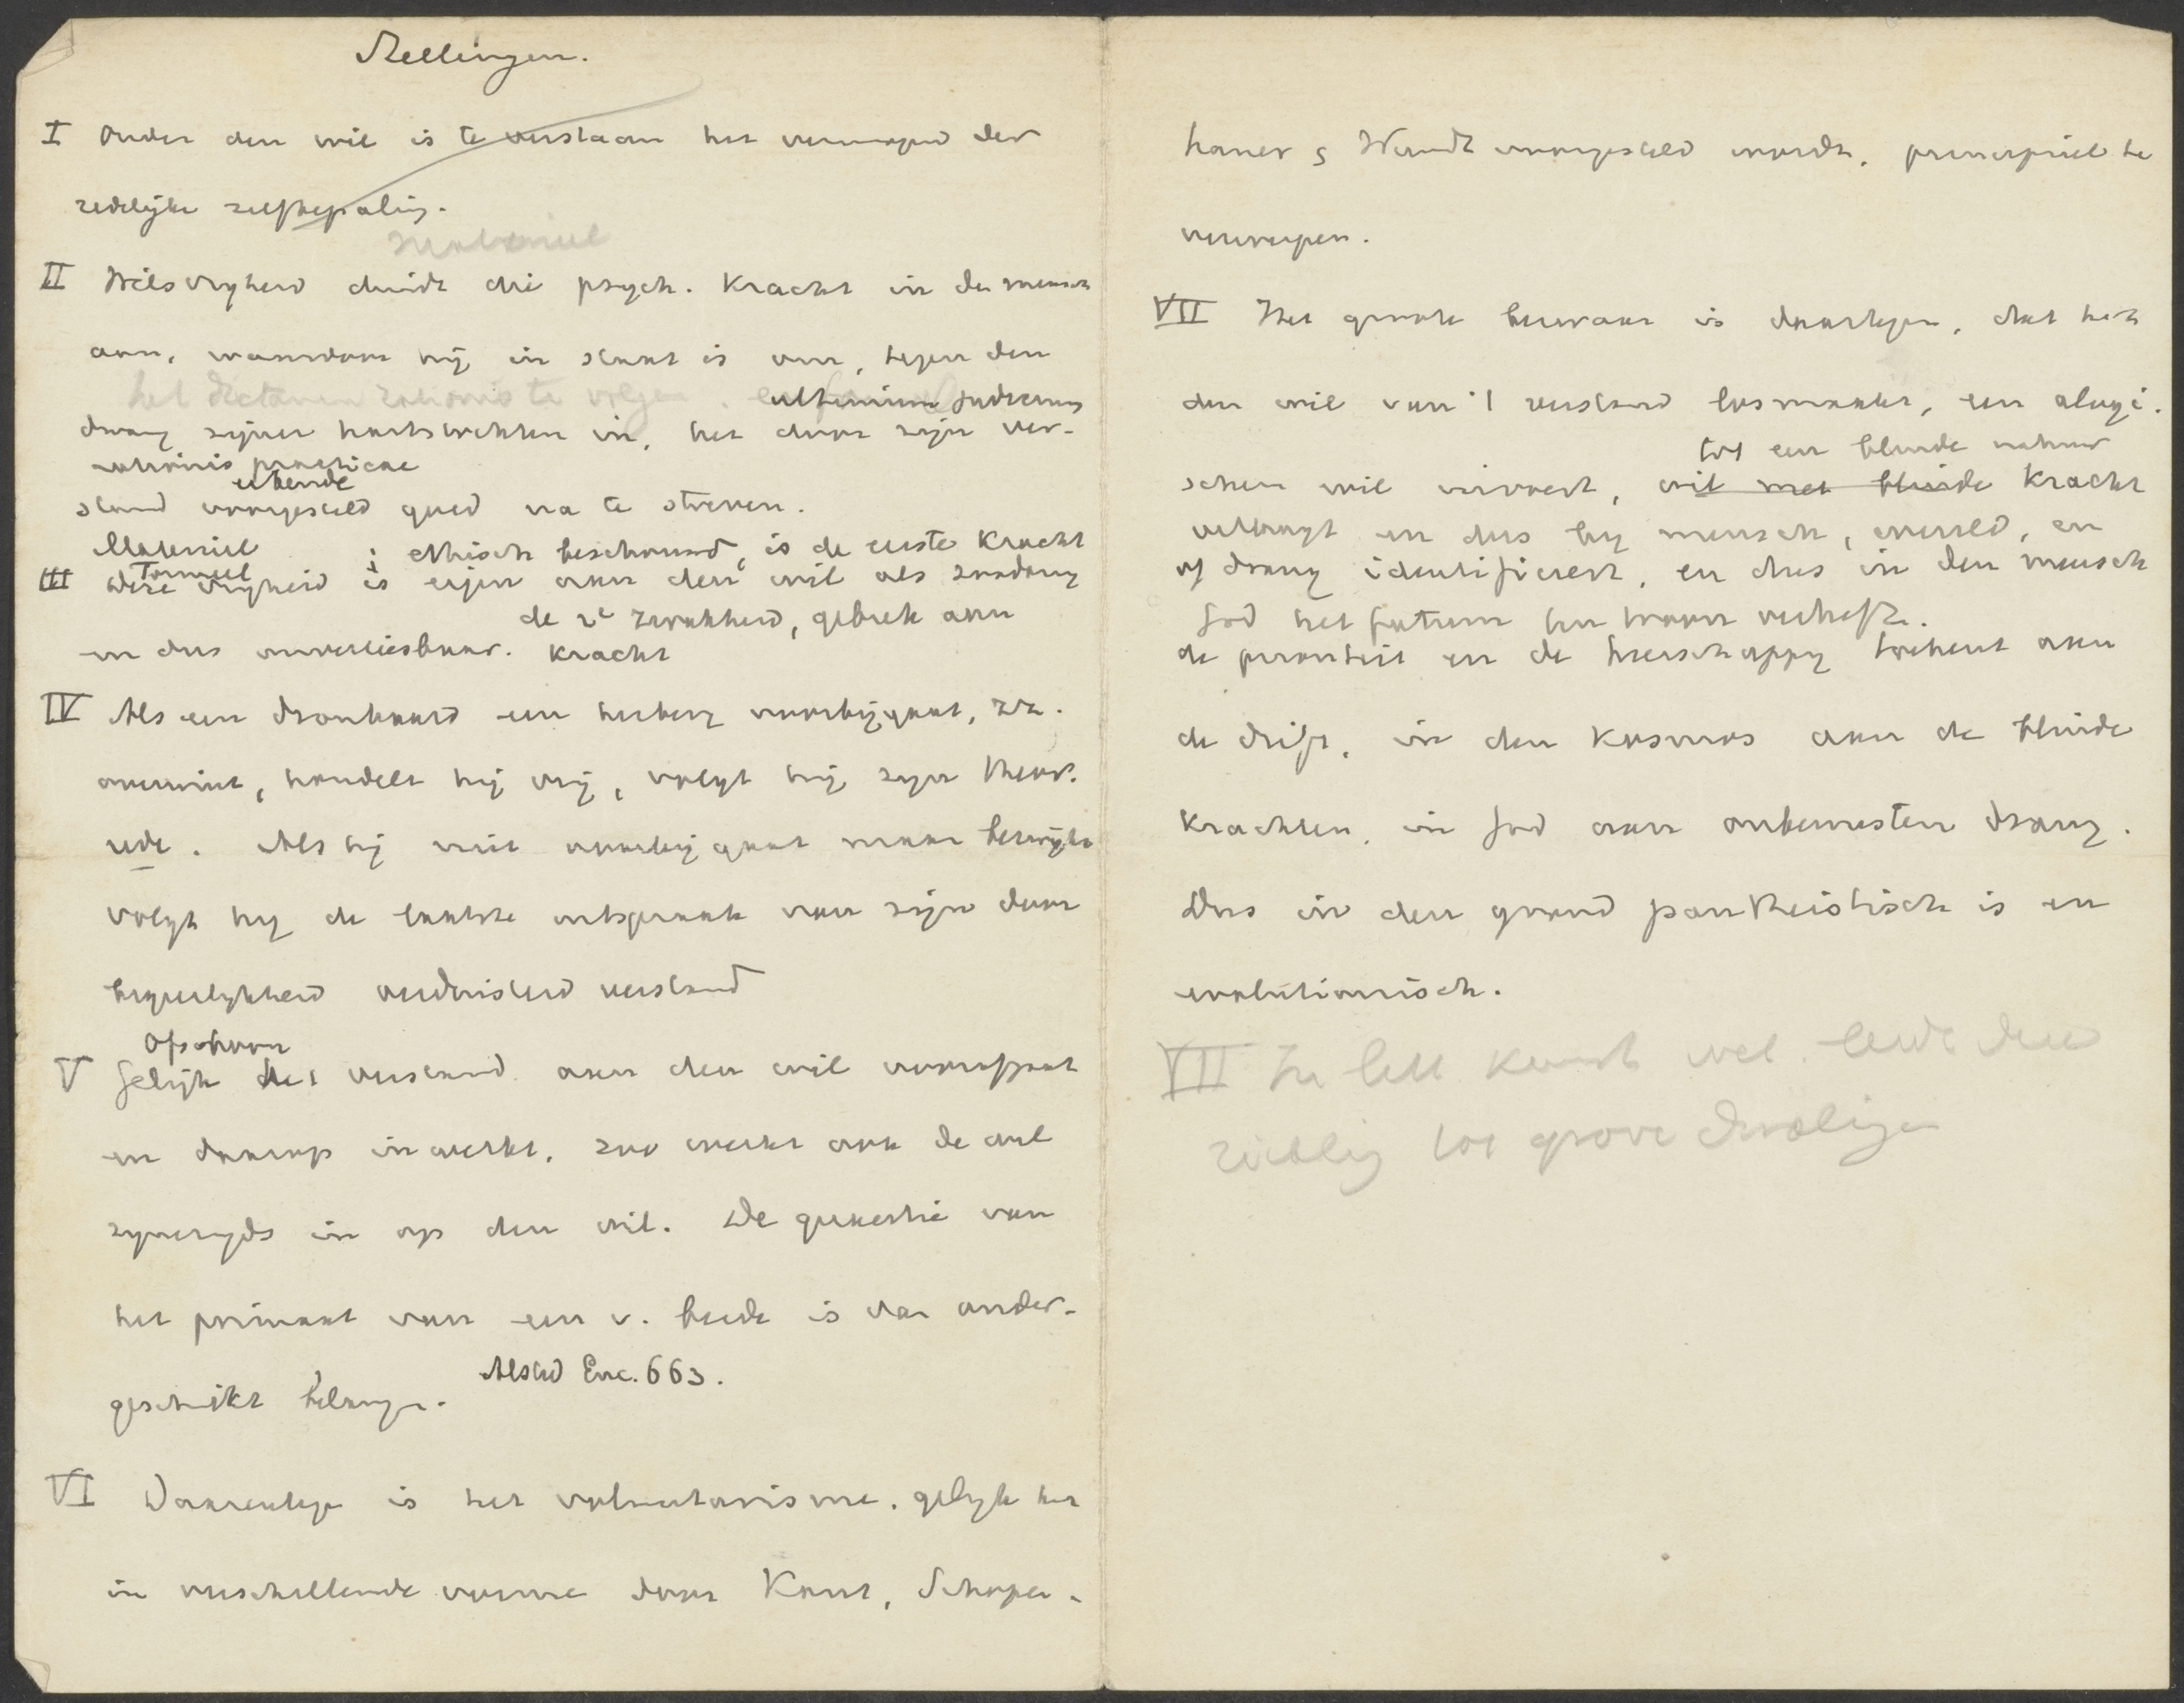 Stellingen.
I Onder den wil is te verstaan het vermogen der
redelijke zelfbepaling.
Materieel
II Wilsvryheid duidt die psych. Kracht in den mensch
aan, waardoor hij in staat is om, tegen den
het dictamen rationis te volgen. ultimum judicium
drang zijner hartstochten in, het door zijn ver-
rationis practicae
erkende
stand voorgesteld goed na te streven.
Materieel ethisch beschouwd, is de eerste Kracht
Formeel
III Deze vryheid is eigen aan den wil als zoodanig
de 2e zwakheid, gebrek aan
en dus onverliesbaar. Kracht
IV Als een dronkaard een herberg voorbijgaat, zn.
overwint, handelt hij vrij, volgt hij zijn theor.
rede. Als hij niet voorbij gaat maar bezwijkt
volgt hij de laatste uitspraak van zijn door
begeerlykheid verduisterd verstand
Ofschoon
V Gelijk het verstand aan den wil voorafgaat
en daarop inwerkt, zoo werkt ook de wil
zynerzyds in op den wil. De quaestie van
het primaat van een v. beide is van onder-
geschikt belang. Alsted Enc. 663.
VI Daarentegen is het voluntarisme, gelyk het
in verschillende vorme door Kant, Schopen-
hauer & Wundt voorgesteld wordt, principieel te
verwerpen.
VII Het groote bezwaar is daartegen, dat het
den wil van 't verstand losmaakt, een alogi-
tot een blinde natuur
schen wil invoert, wil met blinde Kracht
verlaagt en dus by mensch, wereld, en
of drang identificeert, en dus in den mensch
God het fatum ten troon verheft.
de prioriteit en de heerschappy toekent aan
de drift, in den Kosmos aan de blinde
Krachten, in God aan onbewusten drang.
Dus in den grond pantheistisch is en
evolutionisch.
VII In lett. Kunst wet. leidt deze
richting tot grove dwalingen